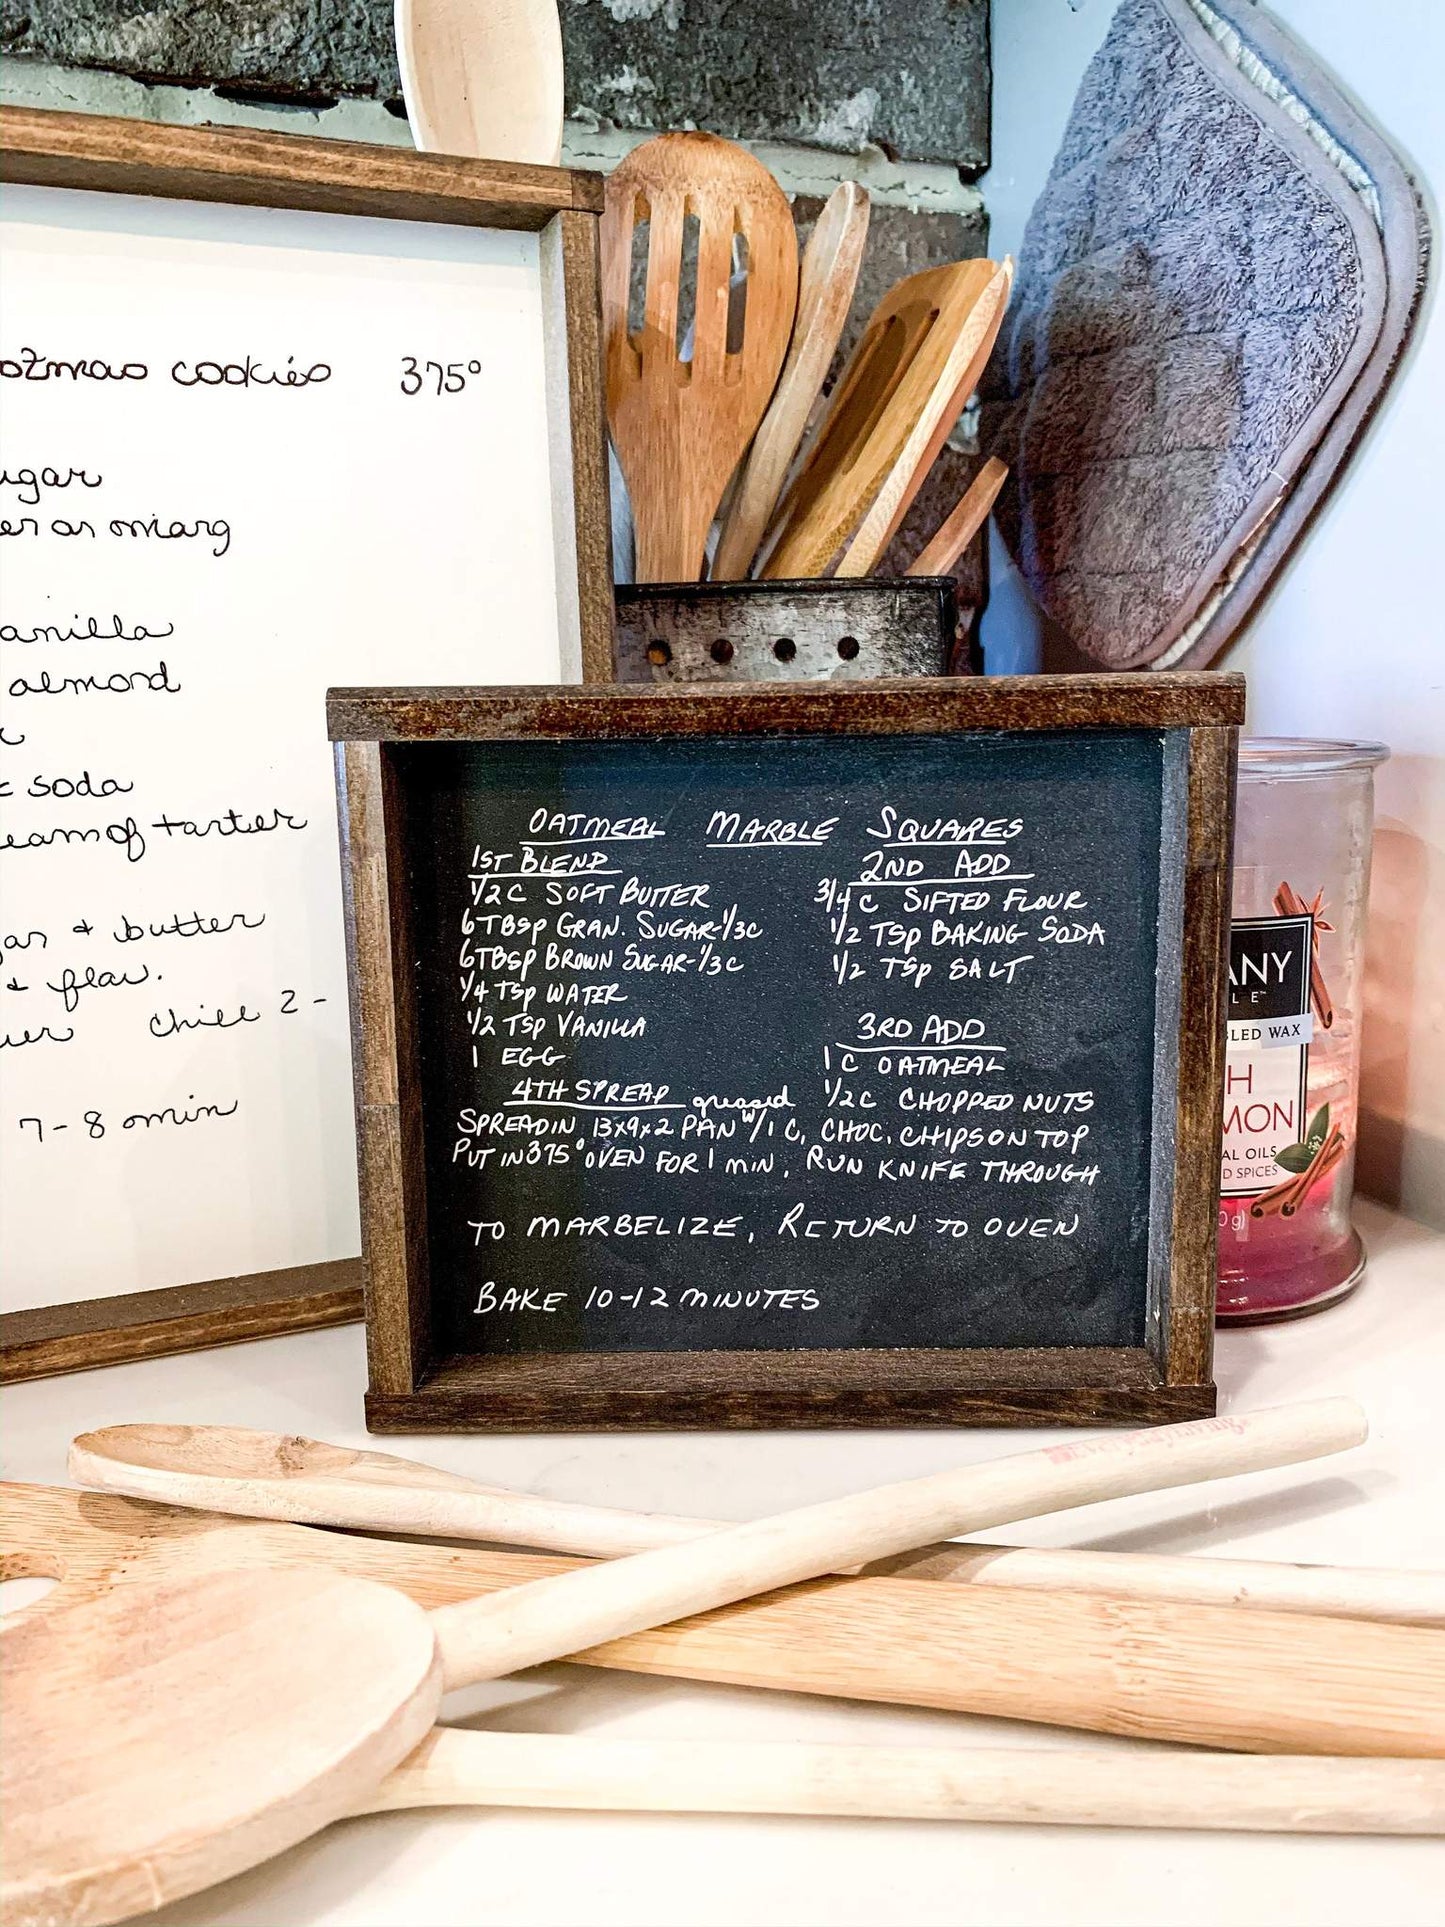 cookies 375°
ugar
er or marg
anilla
almond
soda
eam of tarter
gar + butter
+ flav.
chill 2 -
7-8 min
OATMEAL MARBLE SQUARES
1ST BLEND
1/2 C SOFT BUTTER
6 TBSP GRAN. SUGAR-1/3C
6TBSP BROWN SUGAR-1/3C
1/4 TSP WATER
1/2 TSP VANILLA
1 EGG
2ND ADD
3/4 C SIFTED FLOUR
1/2 TSP BAKING SODA
1/2 TSP SALT
3RD ADD
1 C OATMEAL
1/2 C CHOPPED NUTS
4TH SPREAD
greased
SPREAD IN 13x9x2 PAN W/1 C. CHOC. CHIPS ON TOP
PUT IN 375° OVEN FOR 1 MIN. RUN KNIFE THROUGH
TO MARBELIZE, RETURN TO OVEN
BAKE 10-12 MINUTES
ANY
LE™
LED WAX
H
MON
AL OILS
D SPICES
0 g)